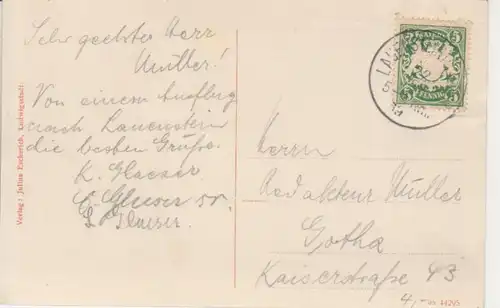 Sehr geehrter Herr
Müller!
Von einem Ausflug
nach Lauenstein
die besten Grüße
K. Glaeser
G. Glaeser sr.
L. Glaeser
Herrn
Redakteur Müller
Gotha
Kaiserstraße 43
4,-
Verlag: Julius Eschrich, Ludwigsstadt.
5
5